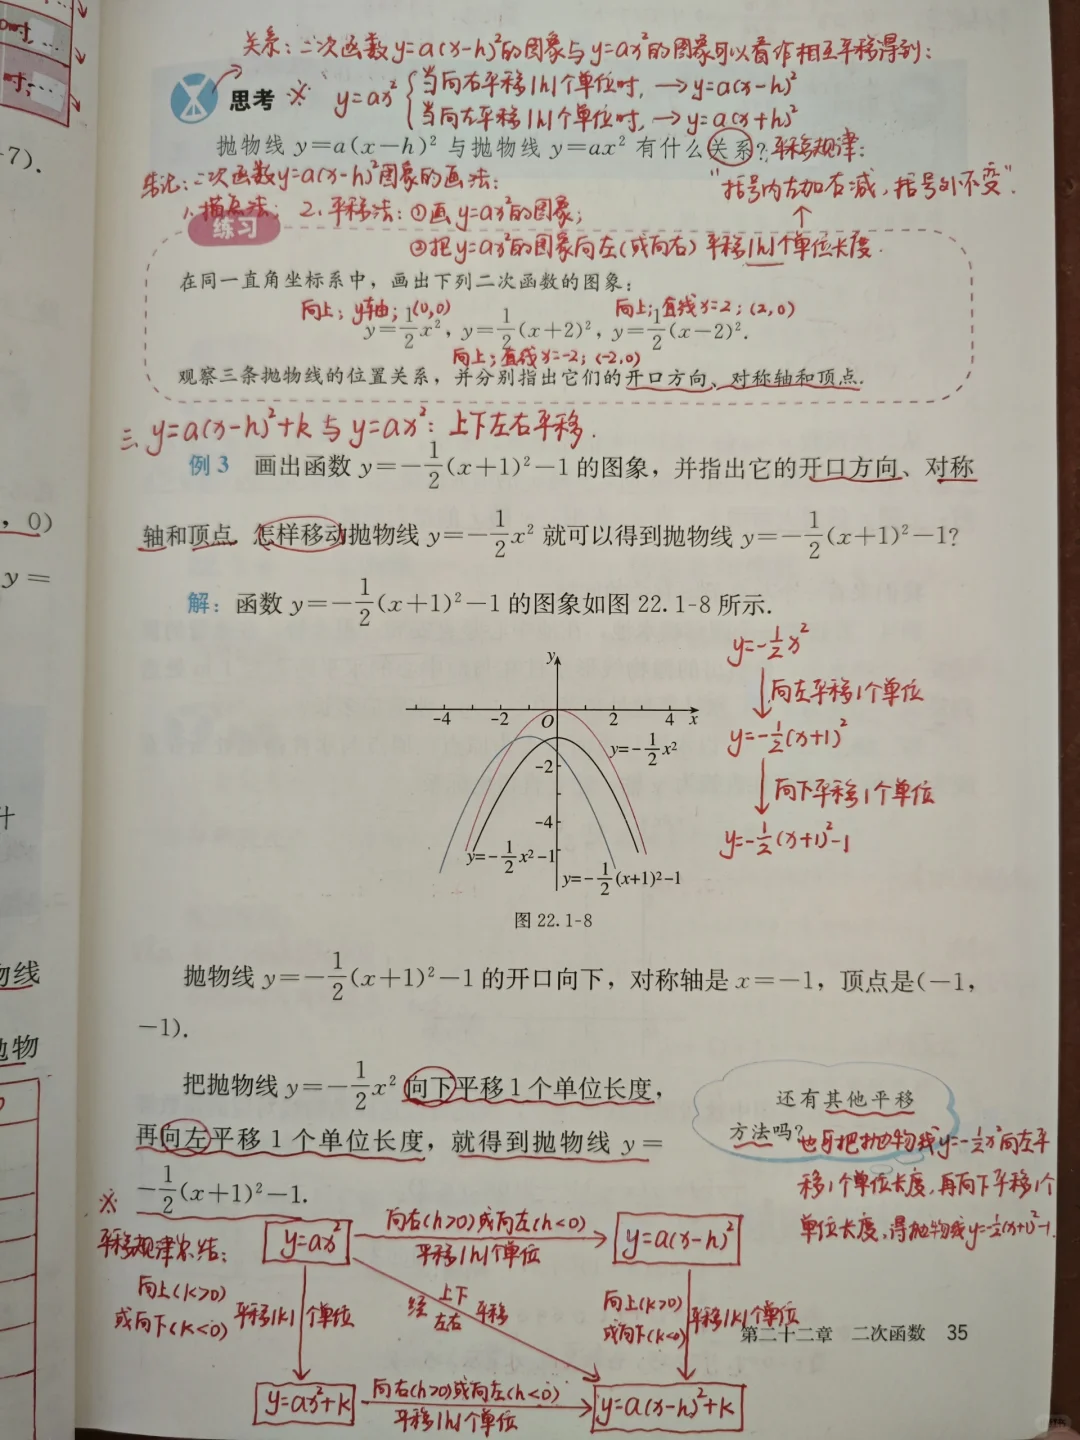 关系：二次函数y=a(x-h)²的图象与y=ax²的图象可以看作相互平移得到：
思考 ※ y=ax² { 当向右平移|h|个单位时，→y=a(x-h)²
当向左平移|h|个单位时，→y=a(x+h)²
抛物线 y=a(x-h)² 与抛物线 y=ax² 有什么关系？平移规律：
结论：二次函数y=a(x-h)²图象的画法：
"括号内左加右减，括号外不变".
1、描点法； 2、平移法：①画y=ax²的图象；
练习
②把y=ax²的图象向左(或向右)平移|h|个单位长度.
在同一直角坐标系中，画出下列二次函数的图象：
向上；y轴；(0,0)
向上；直线x=2；(2,0)
y=1/2x²，y=1/2(x+2)²，y=1/2(x-2)².
向上；直线x=-2；(-2,0)
观察三条抛物线的位置关系，并分别指出它们的开口方向、对称轴和顶点.
三、y=a(x-h)²+k与y=ax²：上下左右平移.
例3 画出函数 y=-1/2(x+1)²-1 的图象，并指出它的开口方向、对称
轴和顶点. 怎样移动抛物线 y=-1/2x² 就可以得到抛物线 y=-1/2(x+1)²-1?
解：函数 y=-1/2(x+1)²-1 的图象如图 22.1-8 所示.
y=-1/2x²
向左平移1个单位
y=-1/2(x+1)²
向下平移1个单位
y=-1/2(x+1)²-1
y
-4 -2 O 2 4 x
y=-1/2x²
-2
-4
y=-1/2x²-1
y=-1/2(x+1)²-1
图 22.1-8
抛物线 y=-1/2(x+1)²-1 的开口向下，对称轴是 x=-1，顶点是(-1，
-1).
把抛物线 y=-1/2x² 向下平移 1 个单位长度，
再向左平移 1 个单位长度，就得到抛物线 y=
-1/2(x+1)²-1.
还有其他平移
方法吗？
也可把抛物线y=-1/2x²向左平
移1个单位长度，再向下平移1个
单位长度，得抛物线y=-1/2(x+1)²-1.
※
平移规律总结：
y=ax²
向右(h>0)或向左(h<0)
平移|h|个单位
y=a(x-h)²
向上(k>0)
或向下(k<0)
平移|k|个单位
经上下左右平移
向上(k>0)
或向下(k<0)
平移|k|个单位
y=ax²+k
向右(h>0)或向左(h<0)
平移|h|个单位
y=a(x-h)²+k
第二十二章 二次函数 35
-7).
，0)
y=
物线